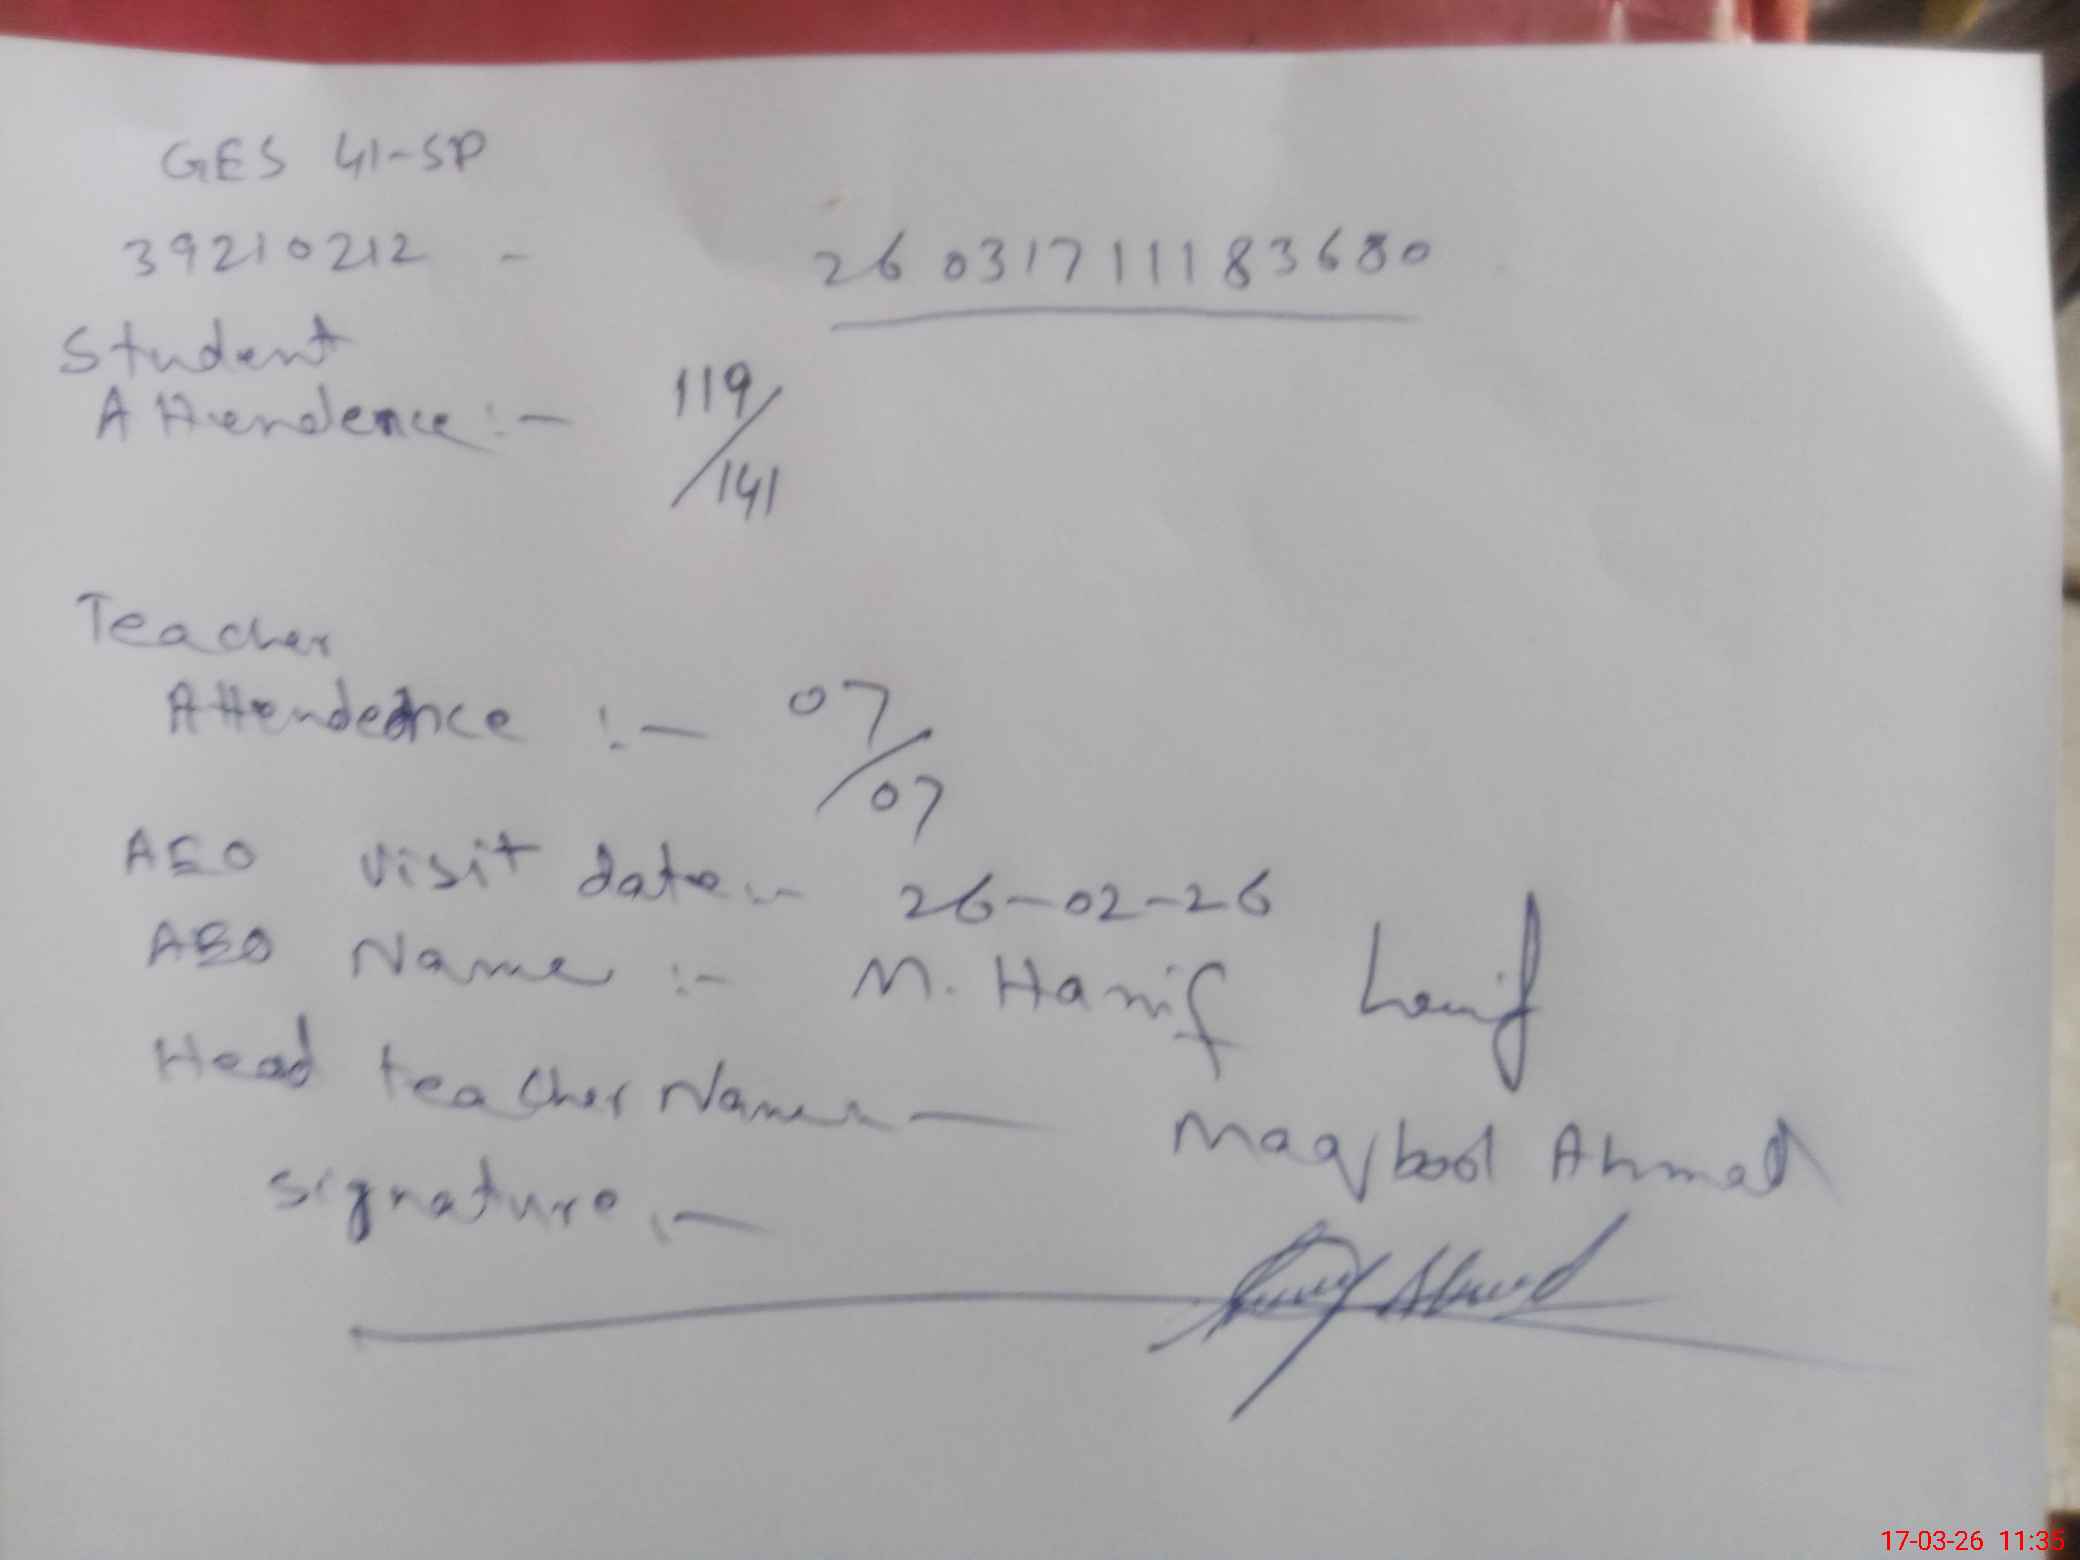 GES 41-SP
39210212 - 26031711183680
Student
Attendence :- 119/141
Teacher
Attendence :- 07/07
AEO visit date :- 26-02-26
AEO Name :- M. Hanif Hanif
Head teacher Name :- Maqbool Ahmad
Signature :-
17-03-26 11:35